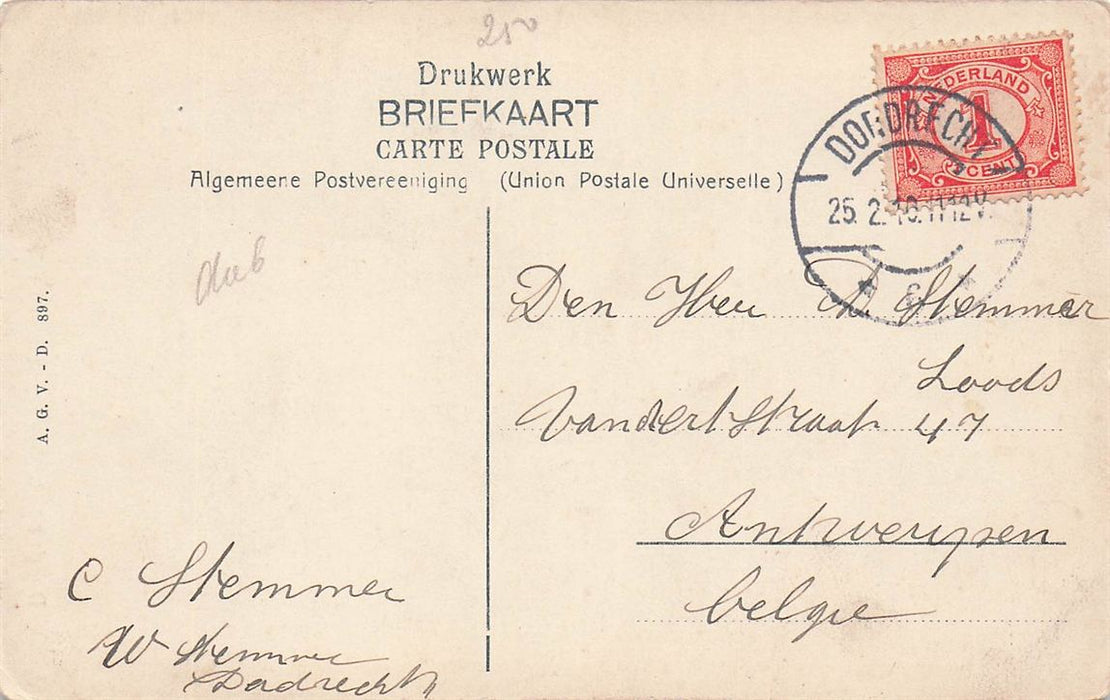 250
Drukwerk
BRIEFKAART
CARTE POSTALE
Algemeene Postvereeniging (Union Postale Universelle)
NEDERLAND
1
CENT
DORDRECHT
25. 2. 10. 11-12V.
6
A. G. V. - D. 897.
Den Heer A. Stemmer
Loods
Vandertstraat 47
Antwerpen
belgie
C Stemmer
W Stemmer
Dordrecht